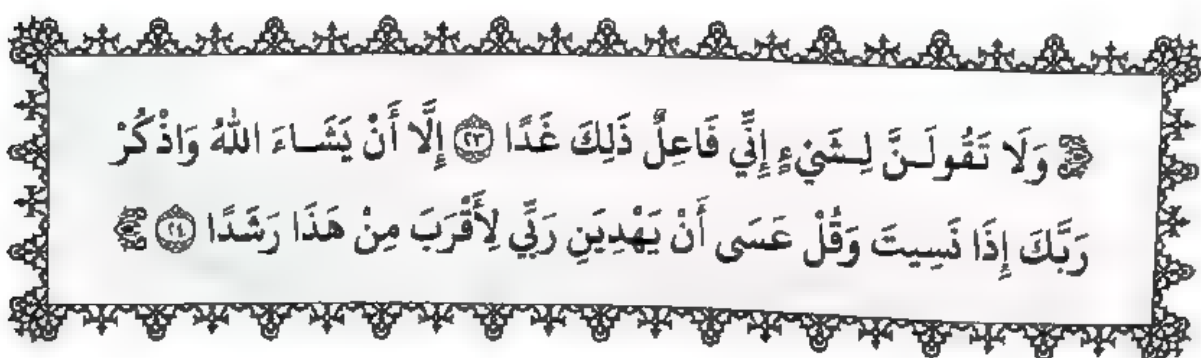 ﴿ وَلَا تَقُولَنَّ لِشَيْءٍ إِنِّي فَاعِلٌ ذَلِكَ غَدًا ۝٢٣ إِلَّا أَنْ يَشَاءَ اللهُ وَاذْكُرْ
رَبَّكَ إِذَا نَسِيتَ وَقُلْ عَسَى أَنْ يَهْدِيَنِ رَبِّي لِأَقْرَبَ مِنْ هَذَا رَشَدًا ۝٢٤ ﴾